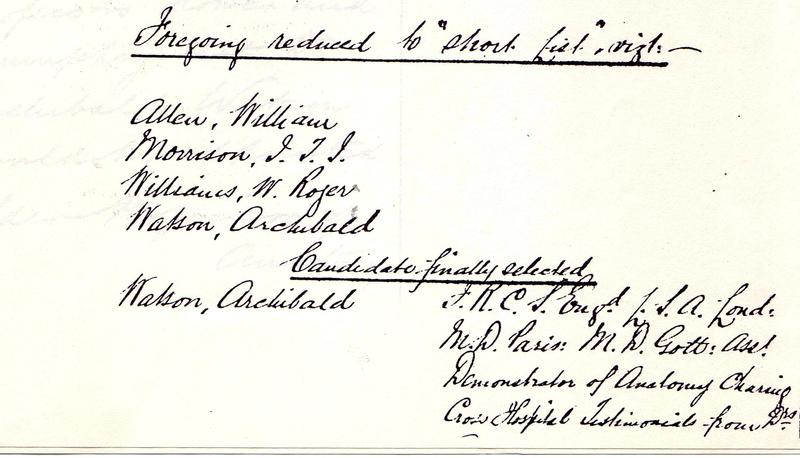 Foregoing reduced to "short list", vizt:—
Allen, William
Morrison, J. T. J.
Williams, W. Roger
Watson, Archibald
Candidate finally selected
Watson, Archibald
F. R. C. S. Engd L. S. A. Lond:
M.D. Paris: M.D. Gott: Asst
Demonstrator of Anatomy Charing
Cross Hospital Testimonials from Drs